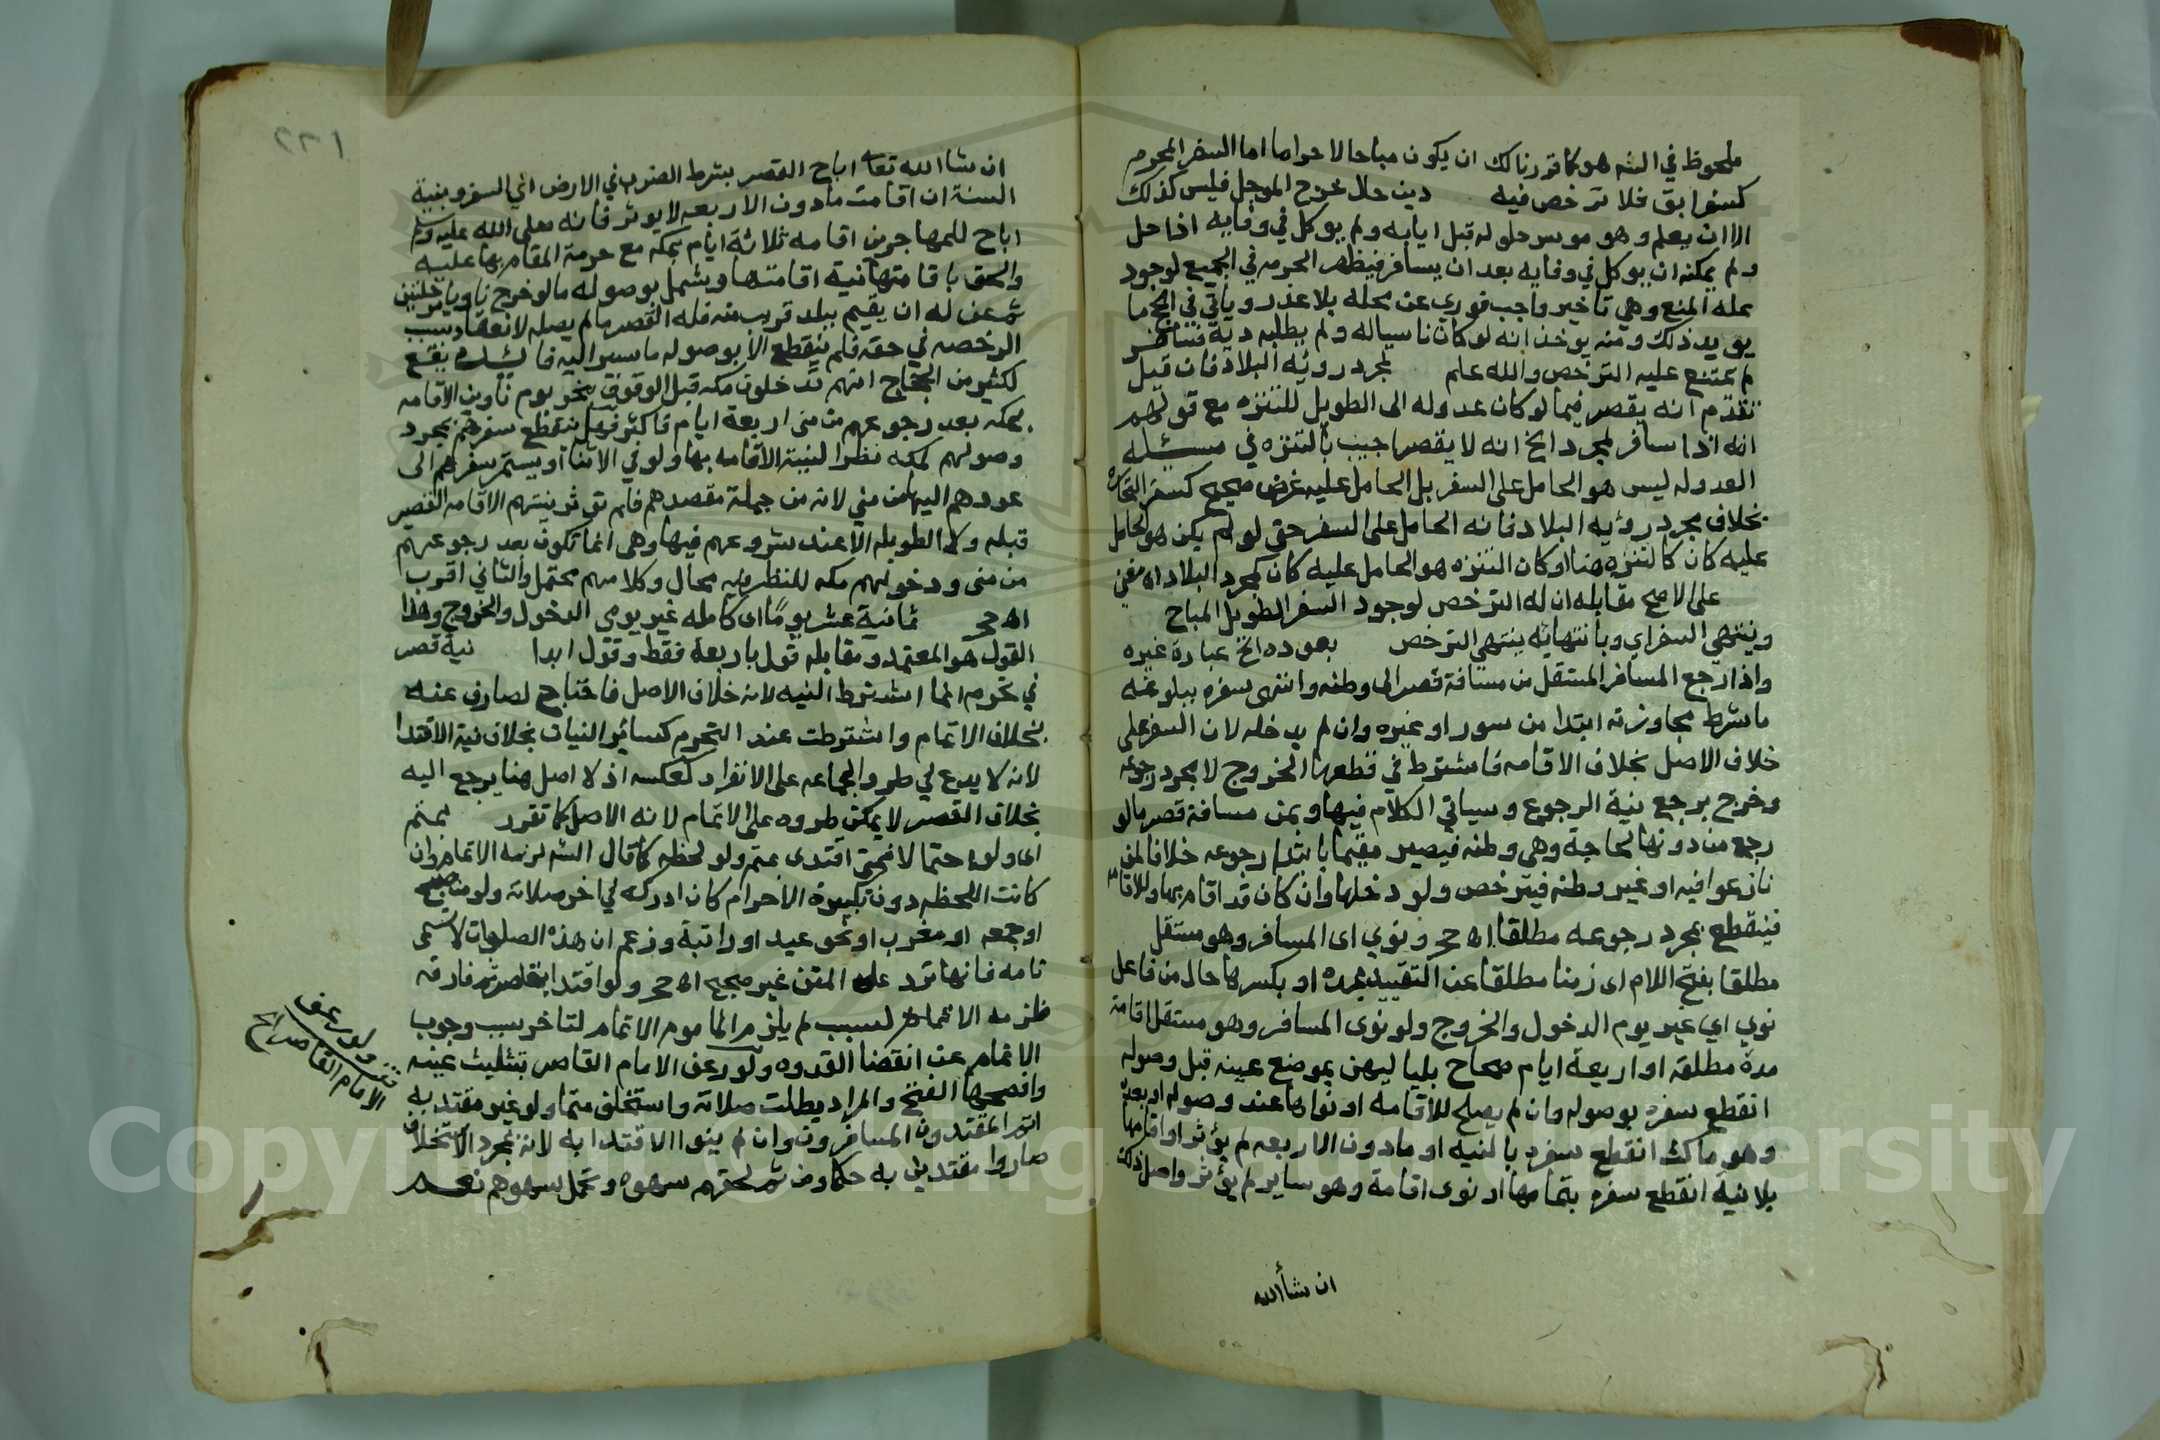 ملحوظ في الشه هو كما قررنا لك ان يكون مباحا لا حراما اما السفر المحرم
كسفر ابق فلا ترخص فيه دين حال خرج الموجل فليس كذلك
الا ان يعلم وهو موسر حلوله قبل ايابه ولم يوكل في وفايه اذا حل
ولم يمكنه ان يوكل في وفايه بعد ان يسافر فيظهر الحرمه في الجميع لوجود
عله المنع وهي تاخير واجب فوري عن محله بلا عذر وياتي في الحج ما
يويد ذلك ومنه يوخذ انه لو كان ناسيا له ولم يطلبه ربه فسافر
لم يمتنع عليه الترخص والله علم لمجرد روئه البلاد فان قيل
تقدم انه يقصر فيما لو كان عدوله الى الطويل للتنزه مع قولهم
انه اذا سافر لمجرد الخ انه لا يقصر اجيب بالتنزه في مسئله
العدوله ليس هو الحامل على السفر بل الحامل عليه غرض صحيح كسفر التجاره
بخلاف مجرد رؤيه البلاد فانه الحامل على السفر حتى لو لم يكن هو الحامل
عليه كان كالتنزه هنا او كان التنزه هو الحامل عليه كان كمجرد البلاد اه مغني
على الاصح مقابله ان له الترخص لوجود السفر الطويل المباح
وينتهي السفر اي وبانتهائه ينتهي الترخص بعوده الخ عبارة غيره
واذا رجع المسافر المستقل من مسافة قصر الى وطنه وانتهى سفره ببلوغه
ما شرط مجاوزته ابتدا من سور او غيره وان لم يدخله لان السفر على
خلاف الاصل بخلاف الاقامه فاشترط في قطعها الخروج لا مجرد رجوعه
وخرج برجع نية الرجوع وسياتي الكلام فيها وبمن مسافة قصر ما لو
رجع من دونها لحاجة وهي وطنه فيصير مقيما بابتدا رجوعه خلافا لمن
نازعوا فيه او غير وطنه فيترخص ولو دخلها وان كان قد اقام بها وللاقامه
فينقطع بمجرد رجوعه مطلقا اه حج ونوي اى المسافر وهو مستقل
مطلقا بفتح اللام اى زمنا مطلقا عن التقييد بمده او بكسرها حال من فاعل
نوي اي غير يوم الدخول والخروج ولو نوى المسافر وهو مستقل اقامة
مدة مطلقة او اربعة ايام صحاح بلياليهن بموضع عينه قبل وصوله
انقطع سفره بوصوله وان لم يصلح للاقامه او نواها عند وصوله او بعده
وهو ماكث انقطع سفره بالنيه او ما دون الاربعه لم يؤثر او اقامها
بلا نية انقطع سفره بتمامها او نوى اقامة وهو ساير لم يؤثر واصل ذلك
ان شأ الله
٢٢١
ان شا الله تعا اباح القصر بشرط الضرب في الارض اي السفر وبنية
السنة ان اقامت مادون الاربعه لا يوثر فانه صلى الله عليه وسلم
اباح للمهاجرين اقامه ثلاثة ايام بمكه مع حرمة المقام بها عليه
والحق باقامتها نية اقامتها ويشمل بوصوله ما لو خرج ناويا مرحلتين
ثم عن له ان يقيم ببلد قريب منه فله القصر ما لم يصله لانعقاد سبب
الرخصه في حقه فلم ينقطع الا بوصوله ما سير اليه فائده يقع
لكثير من الحجاج انهم يدخلون مكه قبل الوقوف بنحو يوم ناوين الاقامه
بمكه بعد رجوعهم من منى اربعة ايام فاكثر فهل ينقطع سفرهم بمجرد
وصولهم لمكه نظرا لنية الاقامه بها ولو في الاثنا او يستمر سفرهم الى
عودهم اليها من مني لانه من جملة مقصدهم فلم توثر نيتهم الاقامه القصير
قبله ولا الطويله الا عند شروعهم فيها وهي انما تكون بعد رجوعهم
من منى ودخولهم مكه للنظر فيه مجال وكلامهم محتمل والثاني اقرب
اه حج ثمانية عشر يومًا اى كامله غير يومي الدخول والخروج وهذا
القول هو المعتمد ومقابله قول باربعة فقط وقول ابدا نية قصر
في تحرم انما اشترط النيه لانه خلاف الاصل فاحتاج لصارف عنه
بخلاف الاتمام واشترطت عند التحرم كسائر النيات بخلاف نية الاقتدا
لانه لا يدع في طرو الجماعه على الانفراد كعكسه اذ لا اصل هنا يرجع اليه
بخلاف القصر لا يمكن طروه على الاتمام لانه الاصل كما تقرر بمتم
اى ولو احتمالا فمتى اقتدى بمتم ولو لحظه كما قال الشه لزمه الاتمام وان
كانت اللحظه دون تكبيرة الاحرام كان ادركه في اخر صلاته ولو من صبح
او جمعه او مغرب او نحو عيد او راتبة وزعم ان هذه الصلوات لا تسمى
تامه فانها ترد على المتن غير صحيح اه حج ولو اقتدا بقاصر ثم فارقه
فلزمه الاتمام لسبب لم يلزم الماموم الاتمام لتاخر سبب وجوب
الاتمام عن انقضا القدوه ولو رعف الامام القاصر بتثليث عينه
وافصحها الفتح والمراد بطلت صلاته واستخلف متما ولو غير مقتد به
اتم المقتدون المسافرون وان لم ينووا الاقتدا به لانه بمجرد الاستخلاف
صاروا مقتدين به حكما ومن ثم لحقهم سهوه وتحمل سهوهم نعم
ولو رعف
الامام القاصر الخ
Copyright © King Saud University